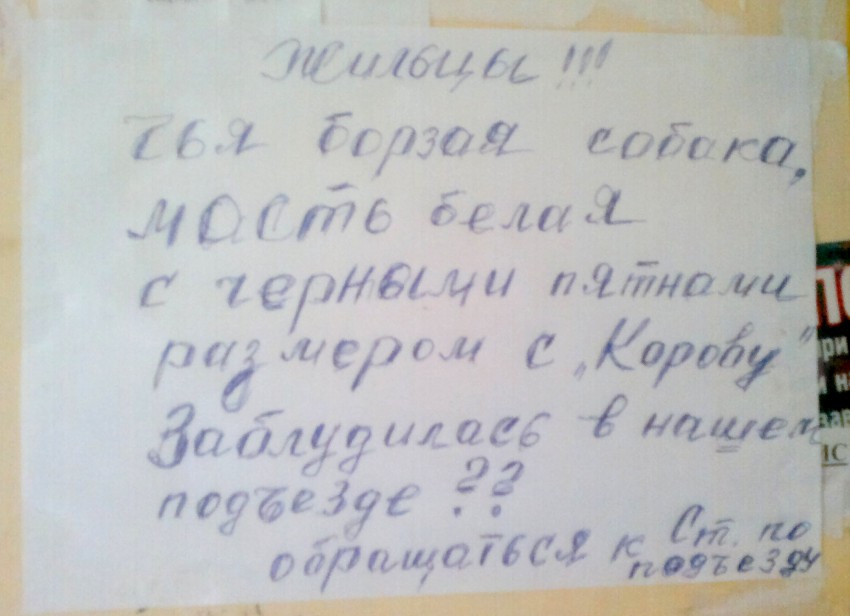 Жильцы!!!
Чья борзая собака,
масть белая
с черными пятнами
размером с „Корову"
Заблудилась в нашем
подъезде ??
обращаться к Ст. по
подъезду